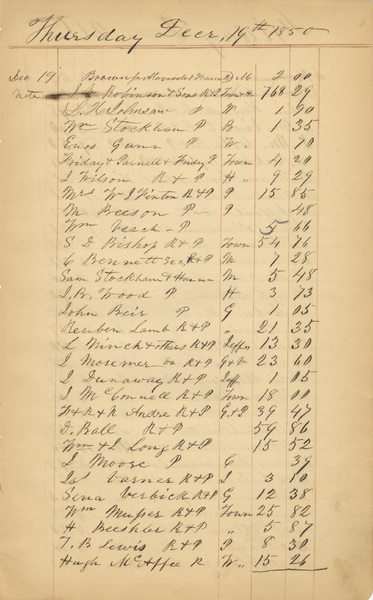 Thursday Decr. 19th 1850
Dec 19 Brown 2 00
Note J Robinson & Sons R&P Town 768 29
L. H. Johnson P P 1 90
Wm Stockham P B 1 35
Enos Gunn P W. 70
Friday & Parnell & Friday P Town 4 20
J Wilson R & P H " 9 29
Mrs W J Vinton R & P P 15 85
M Beeson P P 48
Wm Veach P 5 66
S D Bishop R & P Town 54 76
C Bennett R & P M 1 28
Sam Stockham & Hanna M 5 48
J. B. Wood P H 3 73
John Beir P G 1 05
Reuben Lamb R & P " 21 35
L Minck & others R & P Jeffn 13 30
J Mosemer R & P G & V 23 60
J Dunaway R & P Jeff 1 05
J McConnell R & P Town 18 00
W & R & N Andre R & P G & P 39 47
D. Ball R & P 59 86
Wm & J Long R & P 15 52
J Moose P C 39
Jas Varner R & P J 3 10
Sena Verbick R & P G 12 38
Wm Musser R & P Town 25 82
H Beeshler R & P " 5 87
T. B Lewis R & P P 8 30
Hugh McAffee R W " 15 26